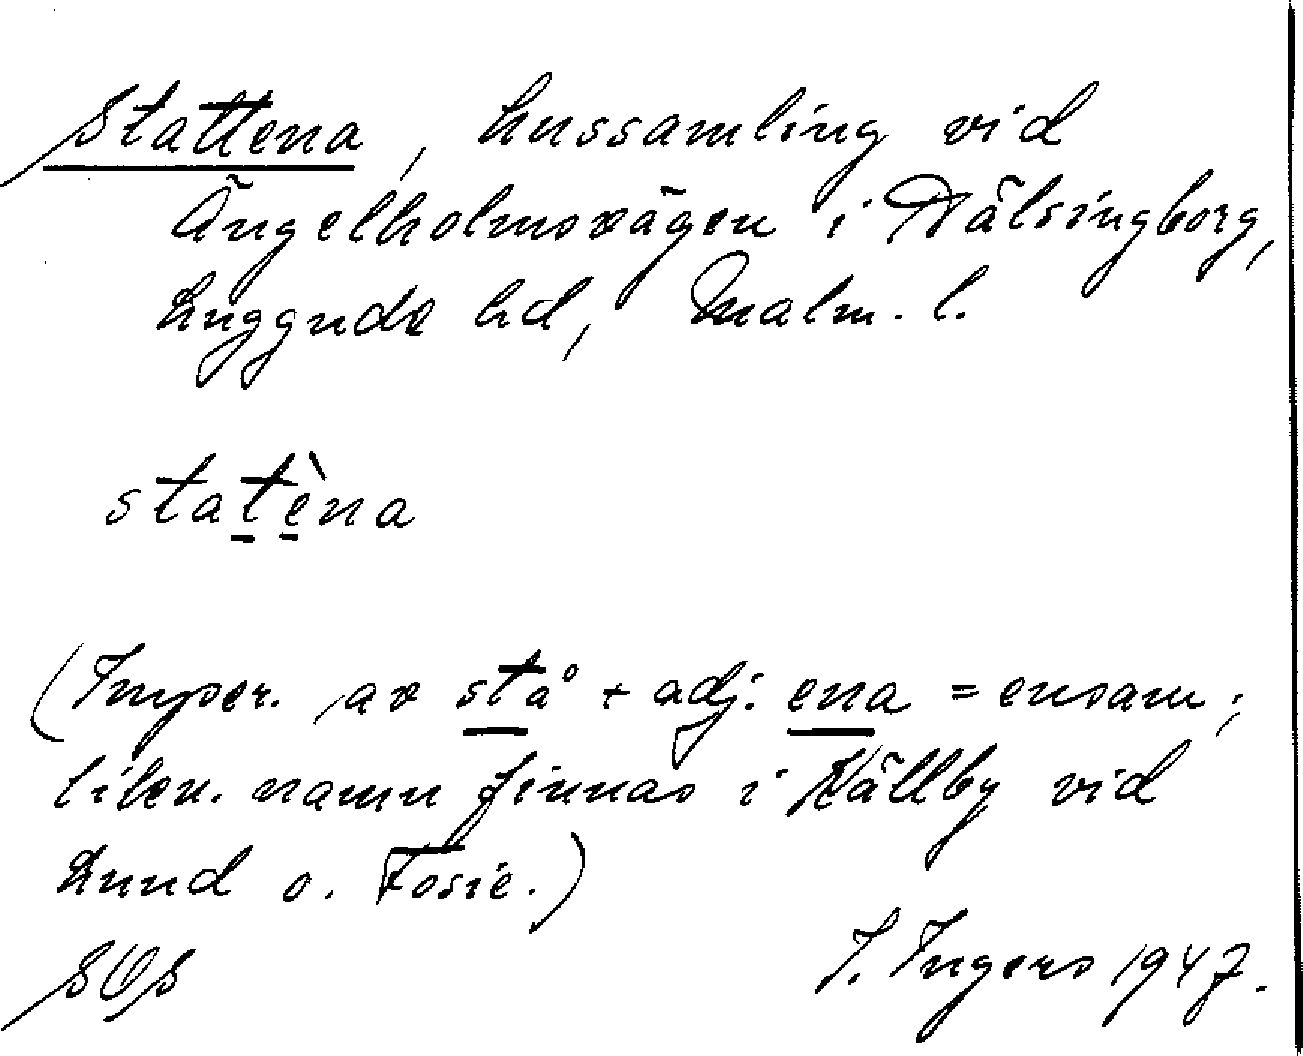 Stattena, hussamling vid
Ängelholmsvägen i Hälsingborg,
Luggude hd, Malm. l.
statèna
(Imper. av stå + adj. ena = ensam;
likn. namn finnas i Källby vid
Lund o. Fosie.)
SOS
I. Ingers 1947.